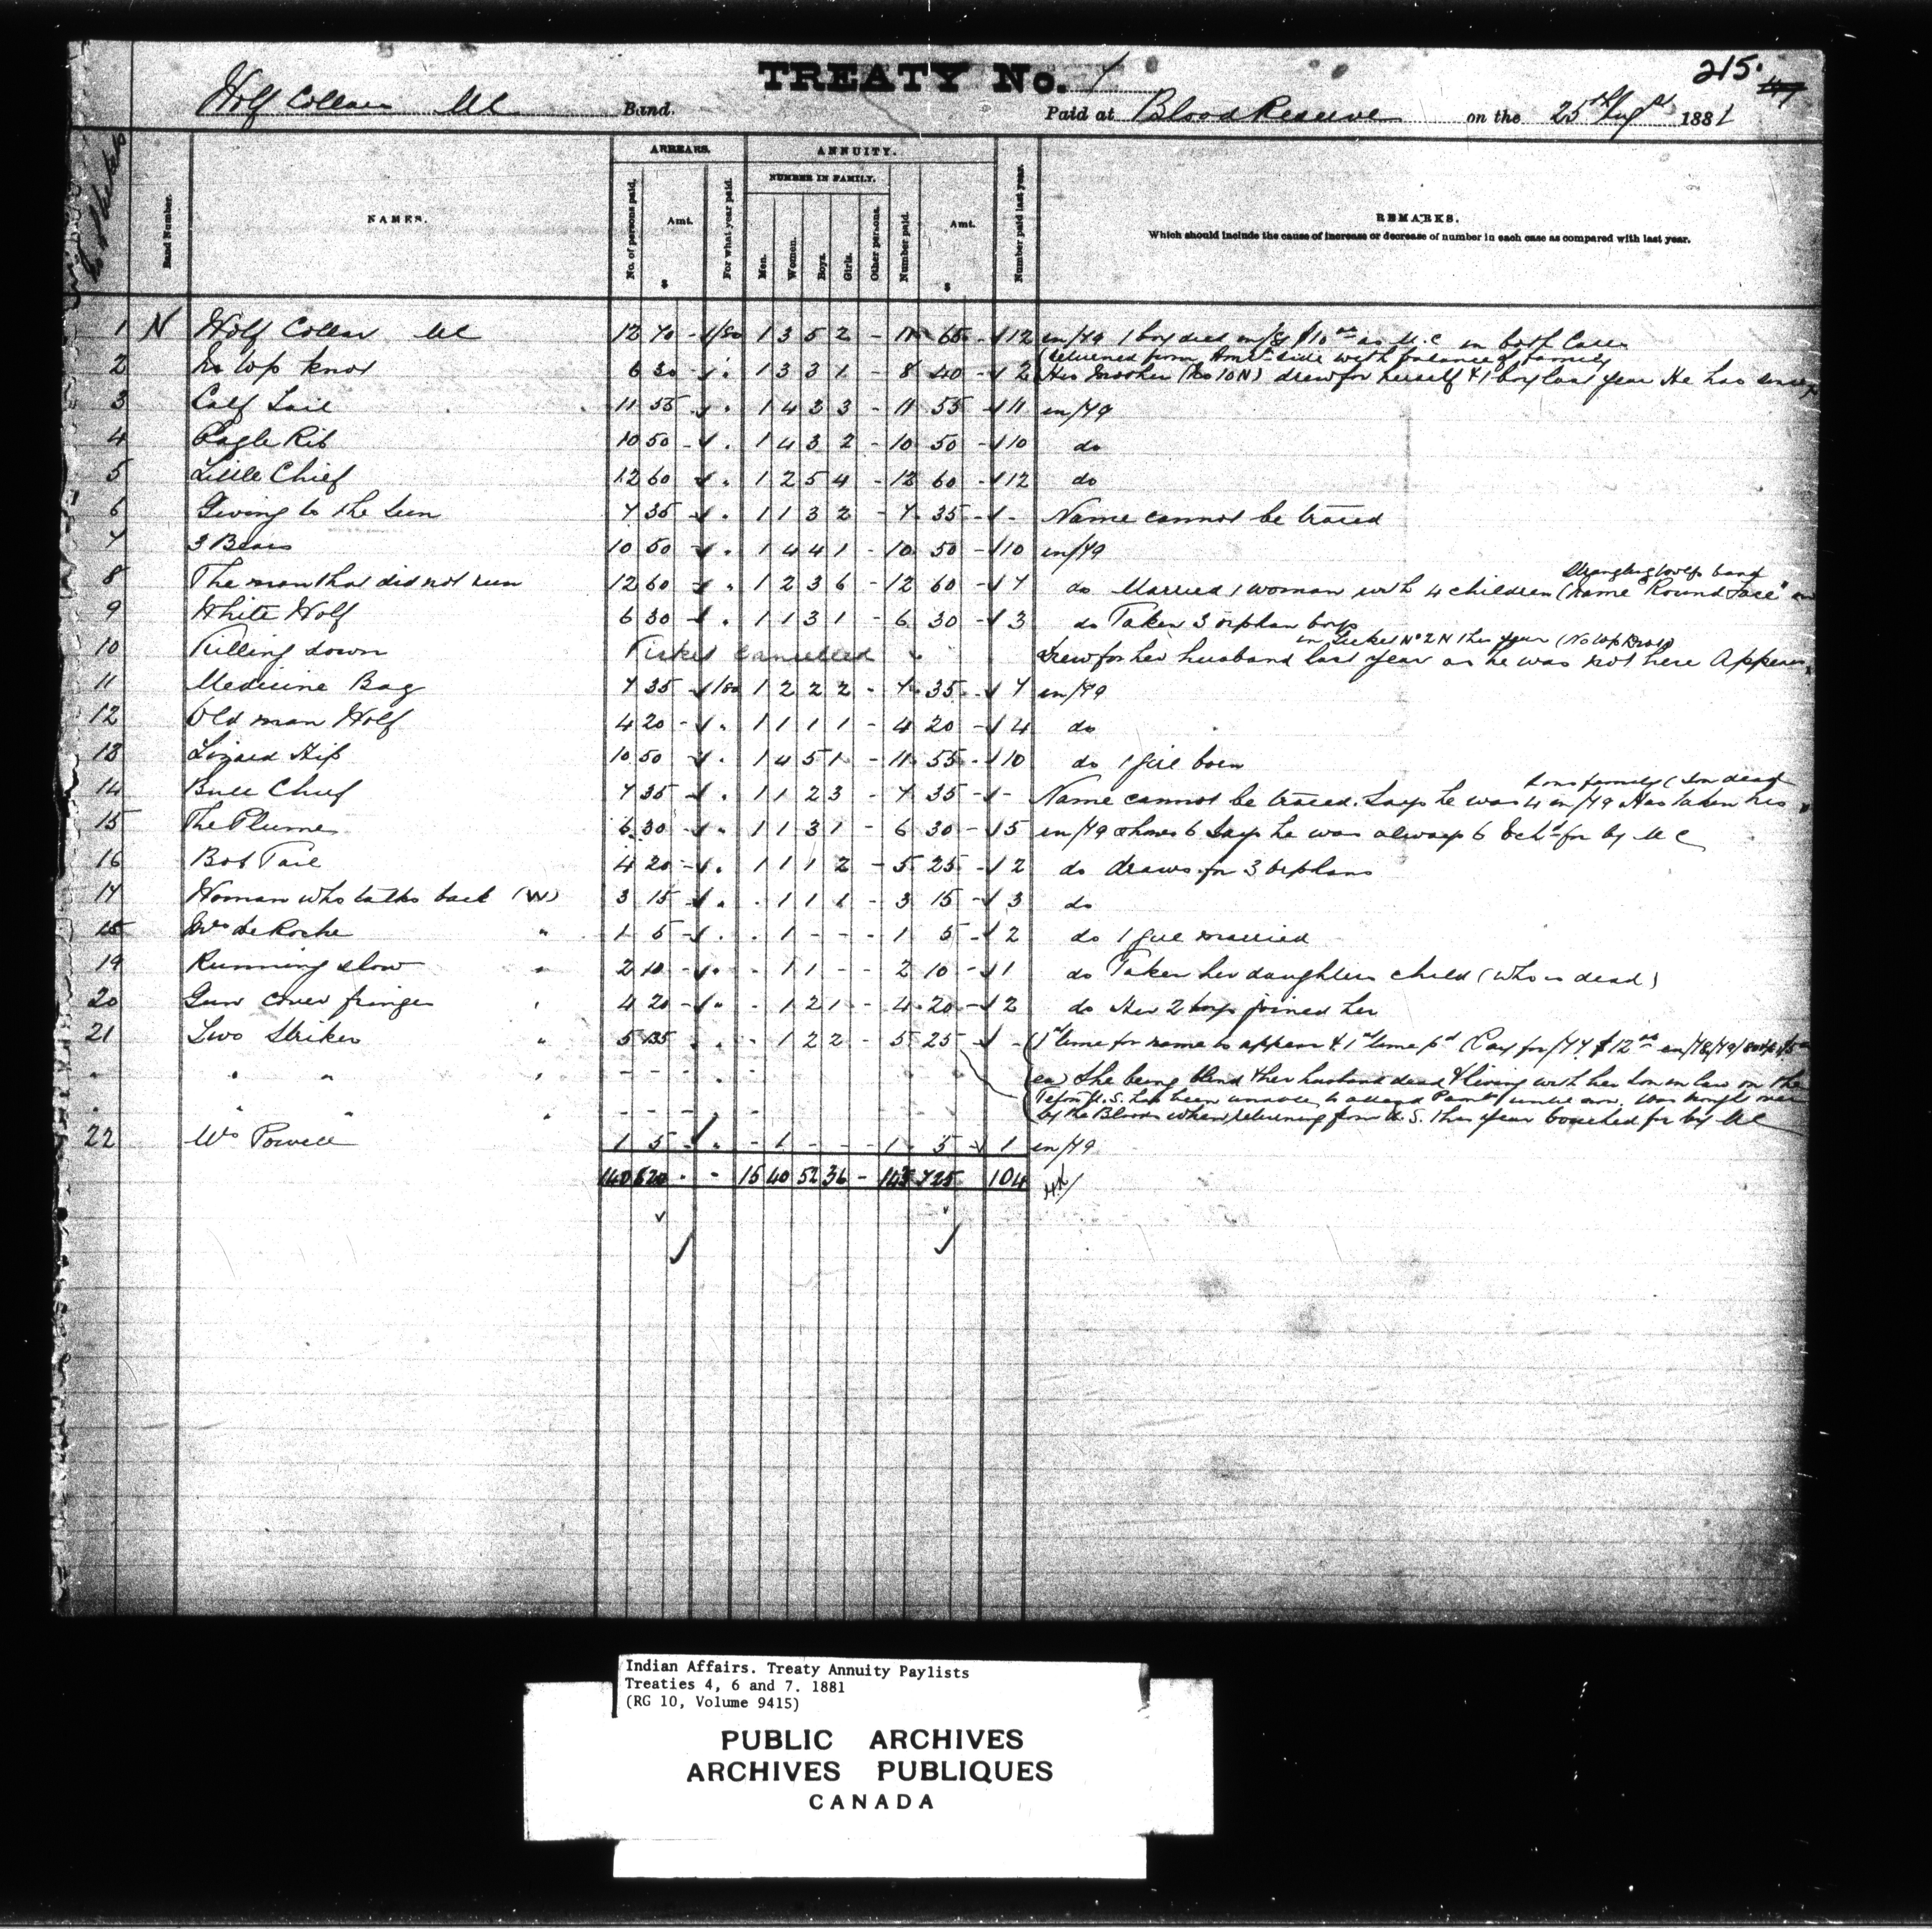 TREATY No. 7
215.
Wolf Collar MC Band. Paid at Blood Reserve on the 25th Augst 1881
ARREARS. ANNUITY.
NUMBER IN FAMILY.
Band Number. NAMES. No. of persons paid. Amt. $ For what year paid. Men. Women. Boys. Girls. Other persons. Number paid. Amt. $ Number paid last year. REMARKS.
Which should include the cause of increase or decrease of number in each case as compared with last year.
1 N Wolf Collar MC 12 70 - /80 1 3 5 2 - 11 65 - 12 in/79 1 boy died in/81 $10 as M.C in both Cases
(returned from Amcn side with balance of family
2 No Top Knot 6 30 - " 1 3 3 1 - 8 40 - 2 His Mother (No 10N) drew for herself & 1 boy last year He has since
3 Calf Tail 11 55 " 1 4 3 3 - 11 55 - 11 in/79
4 Eagle Rib 10 50 - " 1 4 3 2 - 10 50 - 10 do
5 Little Chief 12 60 " 1 2 5 4 - 12 60 - 12 do
6 Giving to the Sun 7 35 " 1 1 3 2 - 7 35 - - Name cannot be traced
7 3 Bears 10 50 - " 1 4 4 1 - 10 50 - 10 in/79
Strangling Wolfs band
8 The man that did not run 12 60 " 1 2 3 6 - 12 60 - 7 do Married 1 woman with 4 children (name "Round Face"
9 White Wolf 6 30 - " 1 1 3 1 - 6 30 - 3 do Taken 3 orphan boys
in Ticket No 2 N this year (No Top Knot)
10 Killing down Ticket Cancelled Drew for her husband last year as he was not here Appears
11 Medicine Bag 7 35 - /80 1 2 2 2 - 7 35 - 7 in/79
12 Old man Wolf 4 20 - " 1 1 1 1 - 4 20 - 4 do
13 Lizard Hip 10 50 - " 1 4 5 1 - 11 55 - 10 do 1 girl born
Sons family (Son dead
14 Bull Chief 7 35 - " 1 1 2 3 - 7 35 - - Name cannot be traced. Says he was 4 in/79 Has taken his
15 The Plume 6 30 - " 1 1 3 1 - 6 30 - 5 in/79 shows 6 Says he was always 6 Vchd for by MC
16 Bob Tail 4 20 - " 1 1 1 2 - 5 25 - 2 do draws for 3 orphans
17 Woman who talks back (W) 3 15 - " - 1 1 1 - 3 15 - 3 do
18 Mrs de Roche " 1 5 - " - 1 - - - 1 5 - 2 do 1 girl married
19 Running slow " 2 10 - " - 1 1 - - 2 10 - 1 do Taken her daughters child (who is dead)
20 Gun Cover fringes " 4 20 - " - 1 2 1 - 4 20 - 2 do Her 2 boys joined her
21 Two Strikes " 5 135 " - 1 2 2 - 5 25 - (1st time for name to appear & 1st time pd Pay for/77 $12 in/78/79/80
" " " " ea) She being blind & her husband dead & living with her Son in law on the
Teton U.S. has been unable to attend Paymts until now. Was brought over
" " " by the Bloods when returning from U.S. this year vouched for by MC
22 Mrs Powell 1 5 - " - 1 - - - 1 5 - 1 in/79
140 820 - - 15 40 52 36 - 143 725 104
Indian Affairs. Treaty Annuity Paylists
Treaties 4, 6 and 7. 1881
(RG 10, Volume 9415)
PUBLIC ARCHIVES
ARCHIVES PUBLIQUES
CANADA